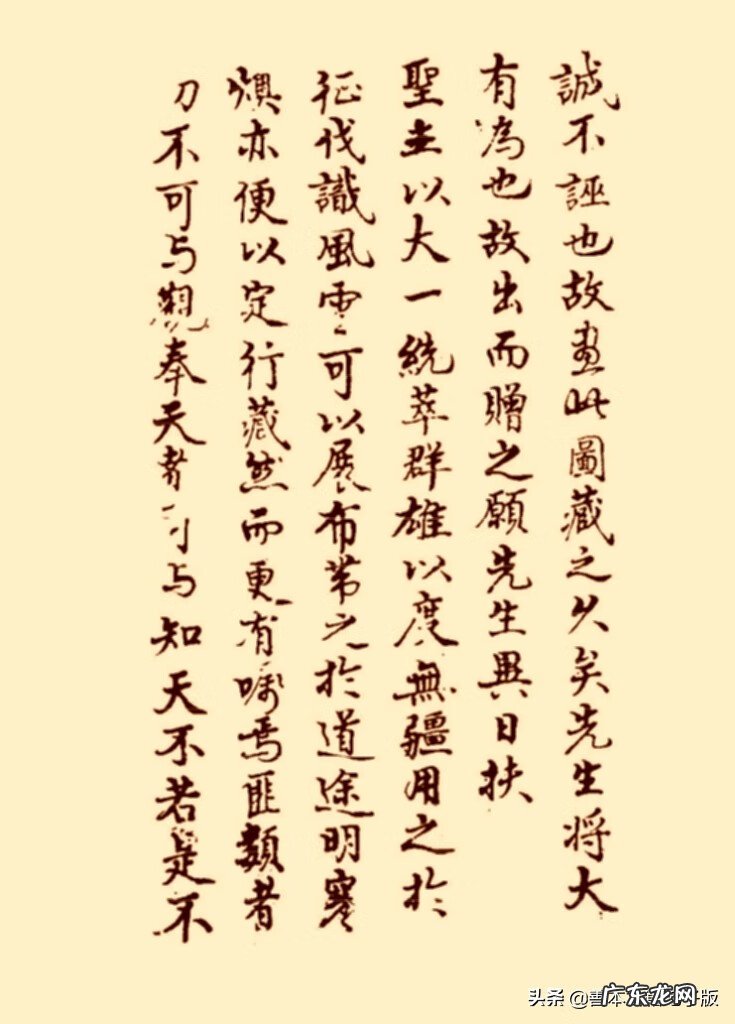 誠不誣也故畫此圖藏之久矣先生將大
有為也故出而贈之願先生異日扶
聖主以大一統萃群雄以度無疆用之於
征伐識風雲可以展布帶之於道途明寒
燠亦便以定行藏然而更有囑焉匪類者
不可与觀奉天者可与知天不若是不
头条 @善本
版
广东龙网